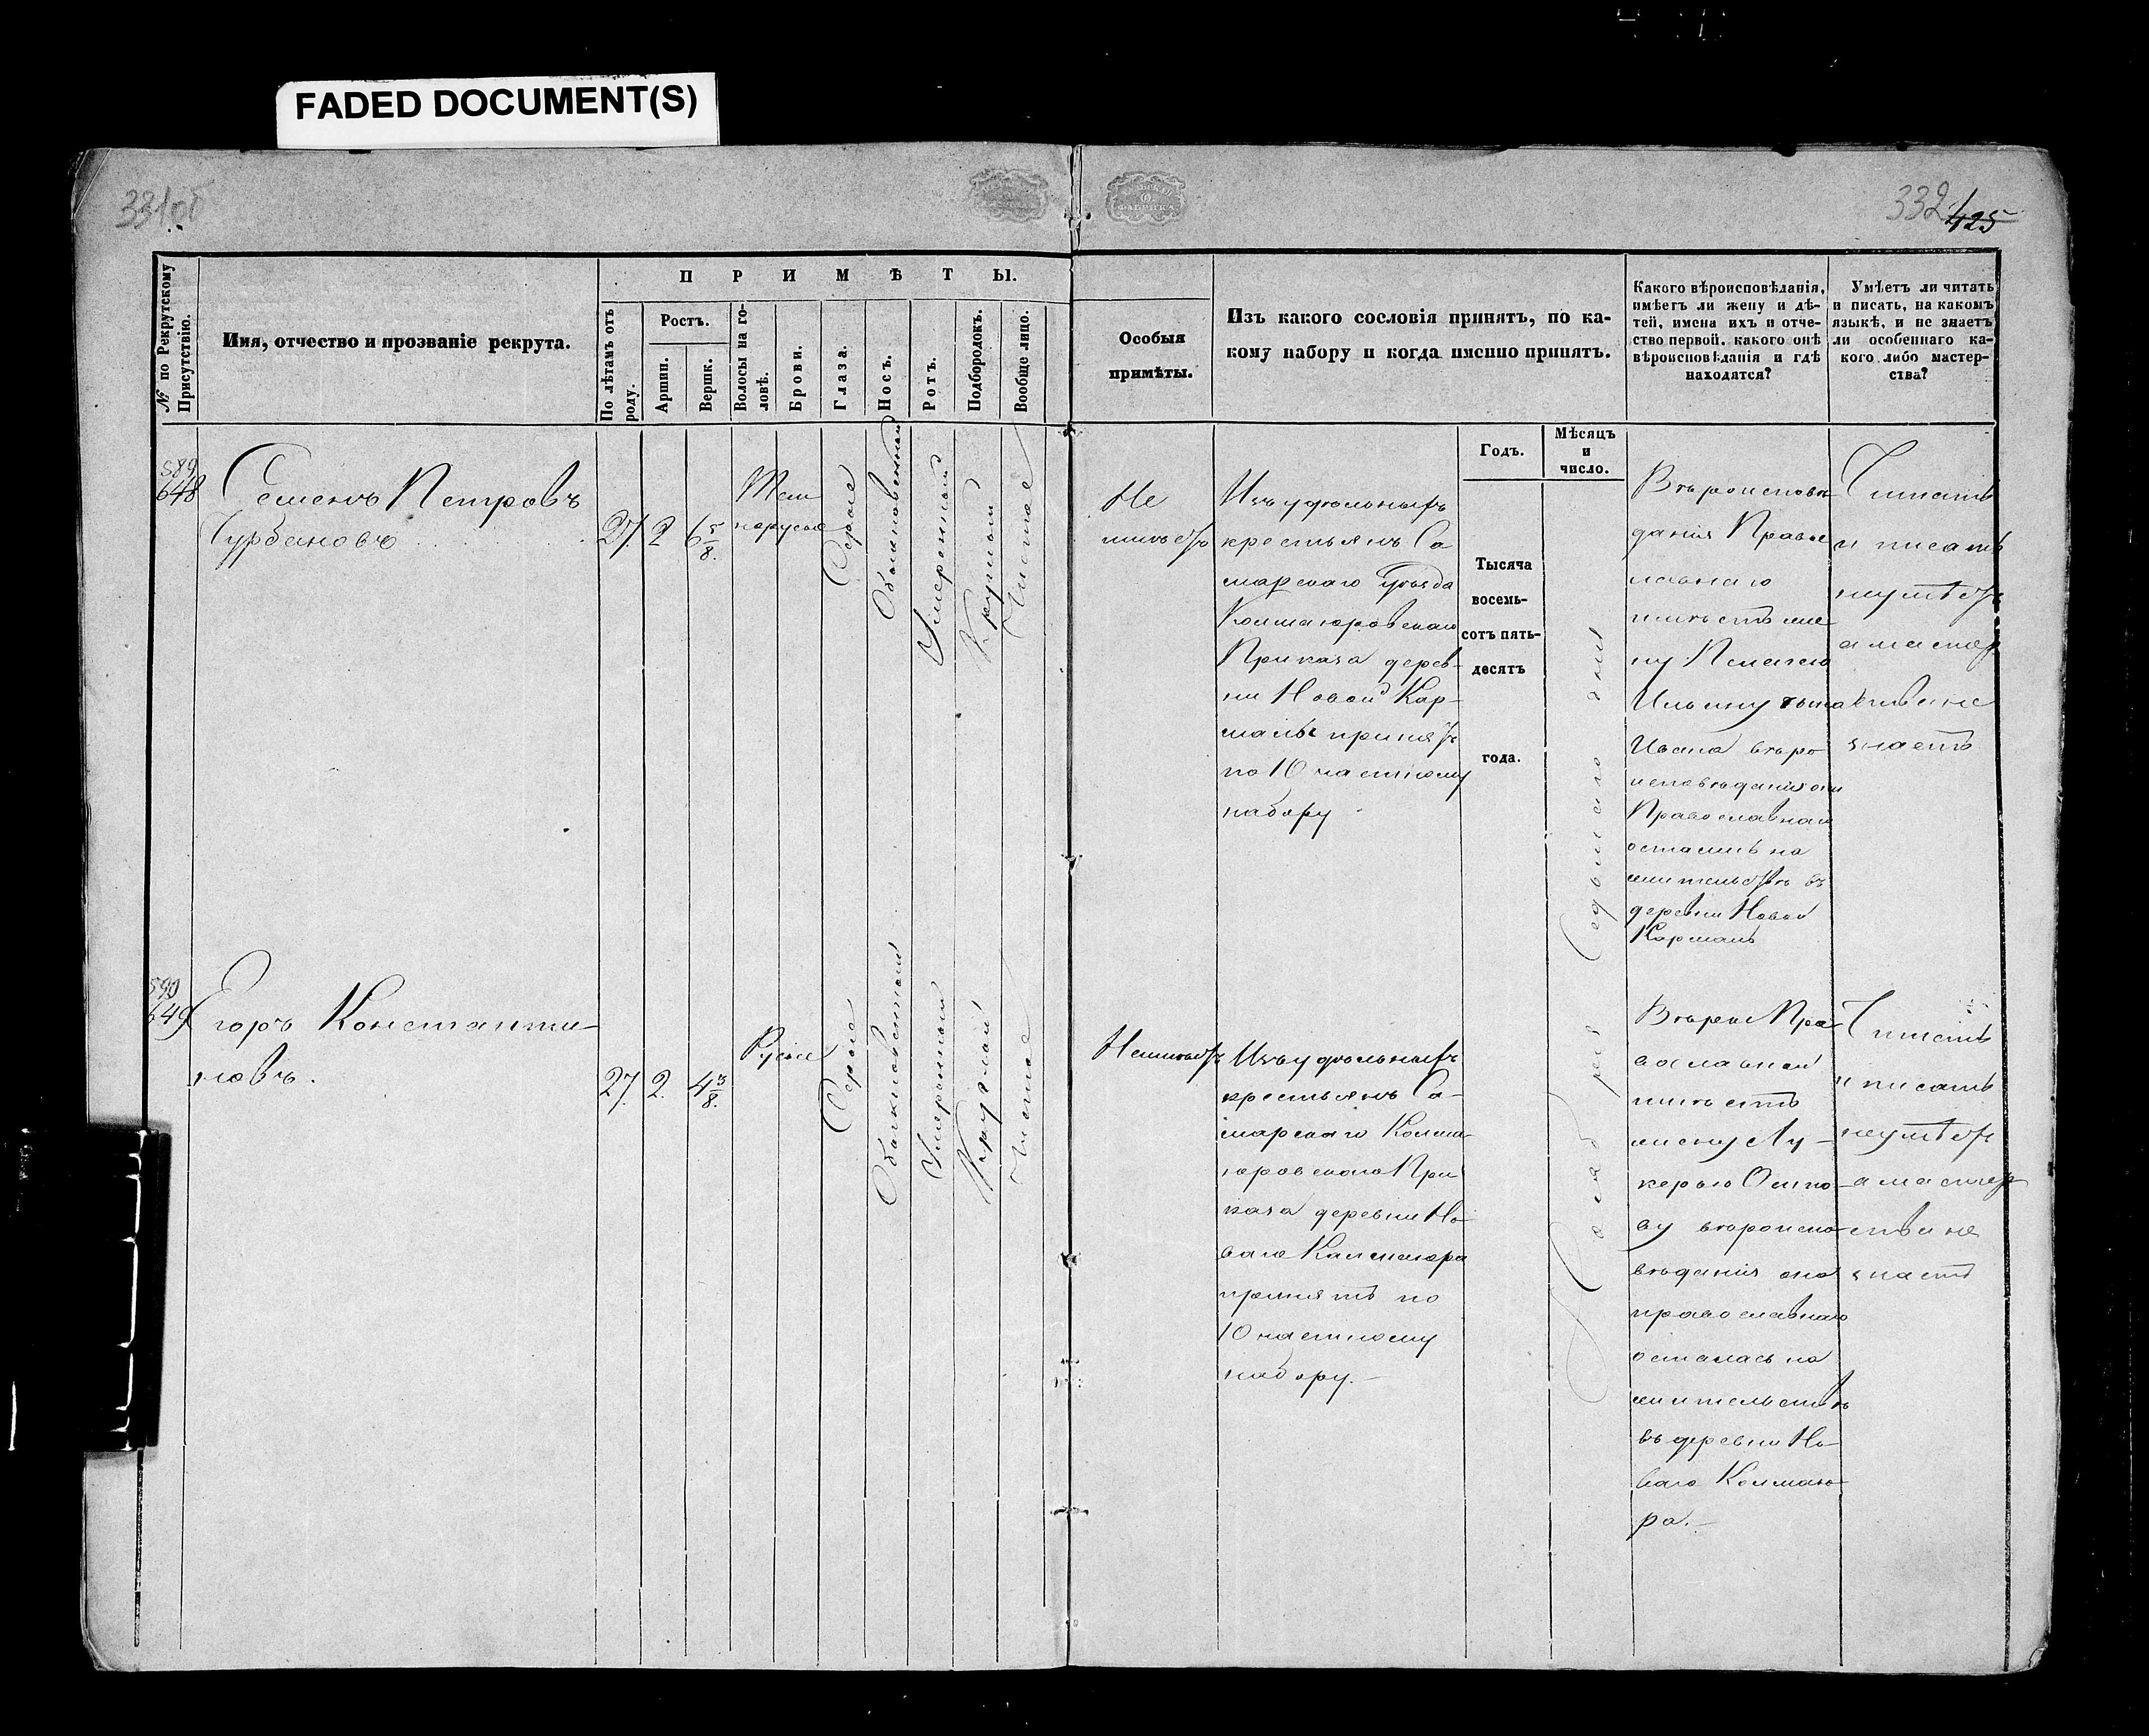 FADED DOCUMENT(S)
331об
332
425
№ по Рекрутскому
Присутствію.
Имя, отчество и прозваніе рекрута.
ПРИМѢТЫ.
По лѣтамъ отъ
роду.
Ростъ.
Аршин.
Вершк.
Волосы на го-
ловѣ.
Брови.
Глаза.
Носъ.
Ротъ.
Подбородокъ.
Вообще лицо.
Особыя
примѣты.
Изъ какого сословія принятъ, по ка-
кому набору и когда именно принятъ.
Годъ.
Мѣсяцъ
и
число.
Какого вѣроисповѣданія,
имѣетъ ли жену и дѣ-
тей, имена ихъ и отче-
ство первой, какого онѣ
вѣроисповѣданія и гдѣ
находятся?
Умѣетъ ли читать
и писать, на какомъ
языкѣ, и не знаетъ
ли особеннаго ка-
кого либо мастер-
ства?
589
648
Семенъ Петровъ
Чурбановъ
27
2
6 5/8.
Тем
норусые
Серые
Обыкновенный
Умеренный
Круглый
Чистое
Не
имѣетъ
Изъ удѣльныхъ
крестьянъ Са
марскаго Уѣзда
Колмаюровскаго
Приказа дерев-
ни Новой Кар-
малы принятъ
по 10 частному
набору
Тысяча
восемь-
сотъ пять-
десятъ
года.
Декабря Седьмаго дня
Вѣроисповѣ
данія Правос
лавнаго
имѣетъ же
ну Пелагею
Ильину сына
Ивана вѣро
исповѣданія они
Православнаго
остались на
жительствѣ въ
деревни Новой
Кармалѣ
Читать
и писать
неумѣетъ
а мастер
ства не
знаетъ
590
649
Егоръ Константи-
новъ.
27.
2.
4 3/8.
Русые
Серые
Обыкновенный
Умеренный
Круглый
Чистое
Неимѣетъ
Изъ удѣльныхъ
крестьянъ Са-
марскаго Колма-
юровскаго При
каза деревни Но-
ваго Калмаюра
принятъ по
10 частному
набору.-
Вѣрои Пра
вославной
имѣетъ
жену Лу-
керью Осипо
ву вѣроиспо
вѣданія она
православнаго
осталась на
жительствѣ
въ деревни Но-
ваго Колмаю-
ра.-
Читать
и писать
неумѣетъ
а мастер
ства не
знаетъ